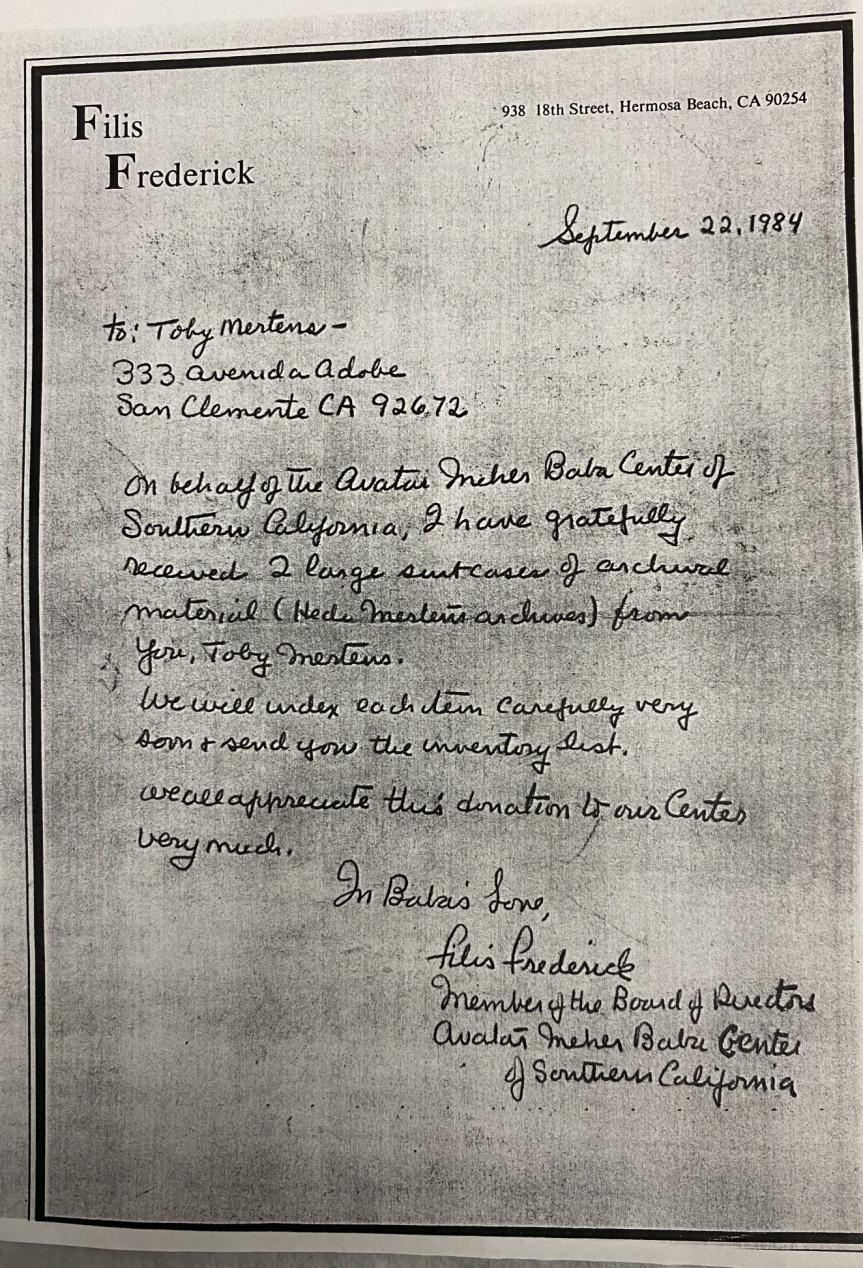 Filis
Frederick
938 18th Street, Hermosa Beach, CA 90254
September 22, 1984
to: Toby Mertens -
333 avenida Adobe
San Clemente CA 92672
On behalf of the Avatar Meher Baba Center of
Southern California, I have gratefully
received 2 large suitcases of archival
material (Hedi Mertens archives) from
you, Toby Mertens.
We will index each item carefully very
soon & send you the inventory list.
we all appreciate this donation to our Center
very much.
In Baba's Love,
Filis Frederick
Member of the Board of Directors
Avatar Meher Baba Center
of Southern California